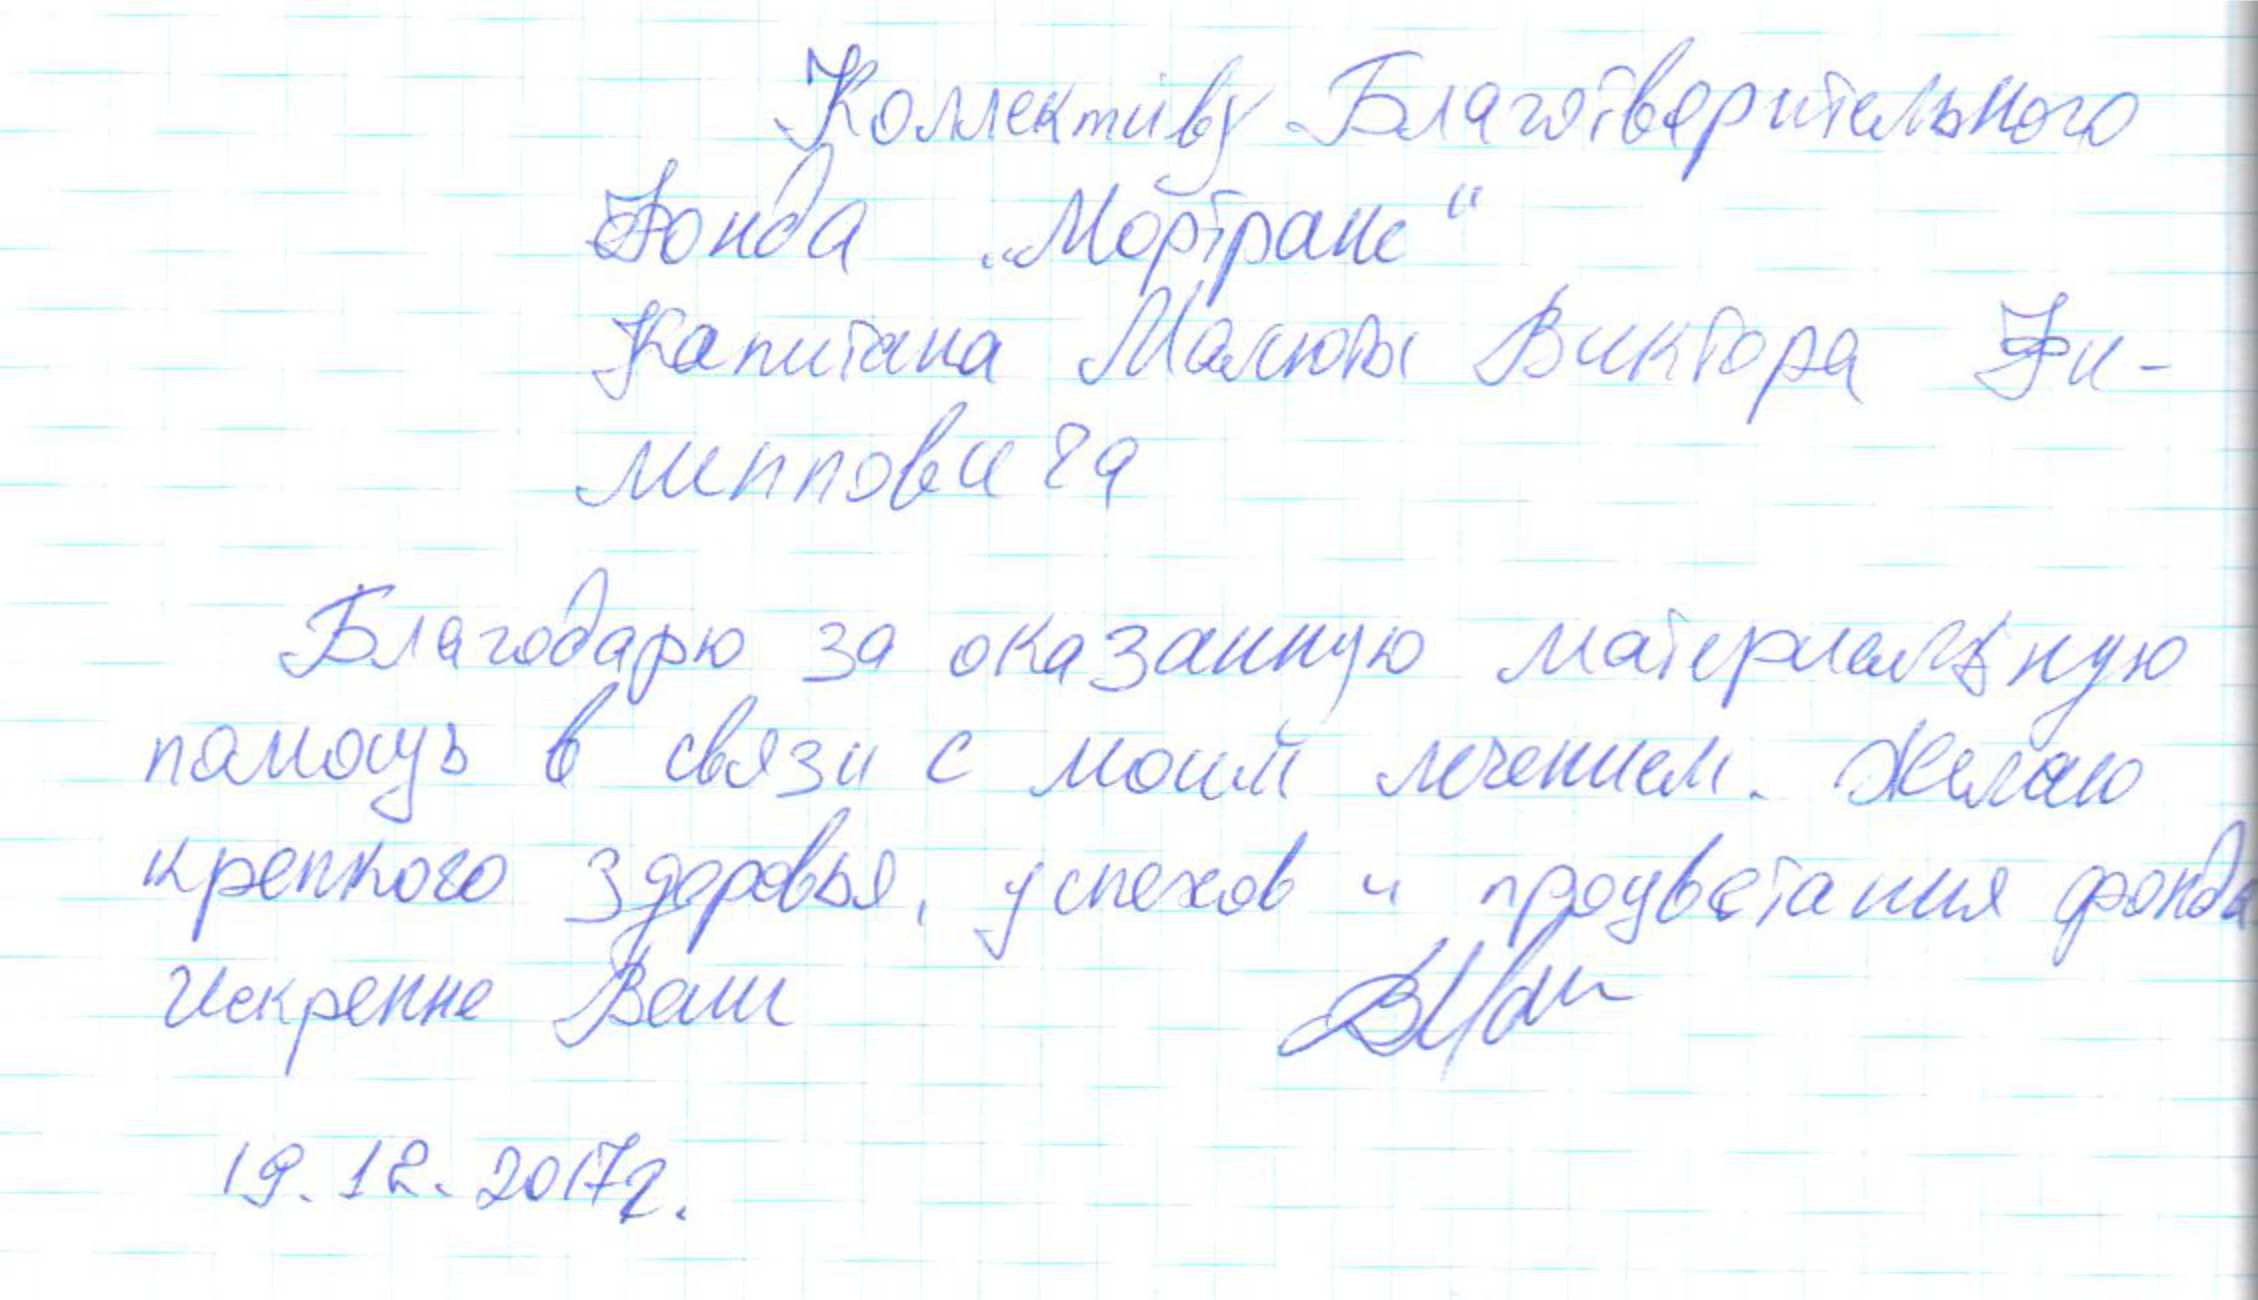 Коллективу Благотворительного
Фонда „Мортранс“
Капитана Малюты Виктора Фи-
липповича
Благодарю за оказанную материальную
помощь в связи с моим лечением. Желаю
крепкого здоровья, успехов и процветания фонда.
Искренне Ваш
19.12.2017г.